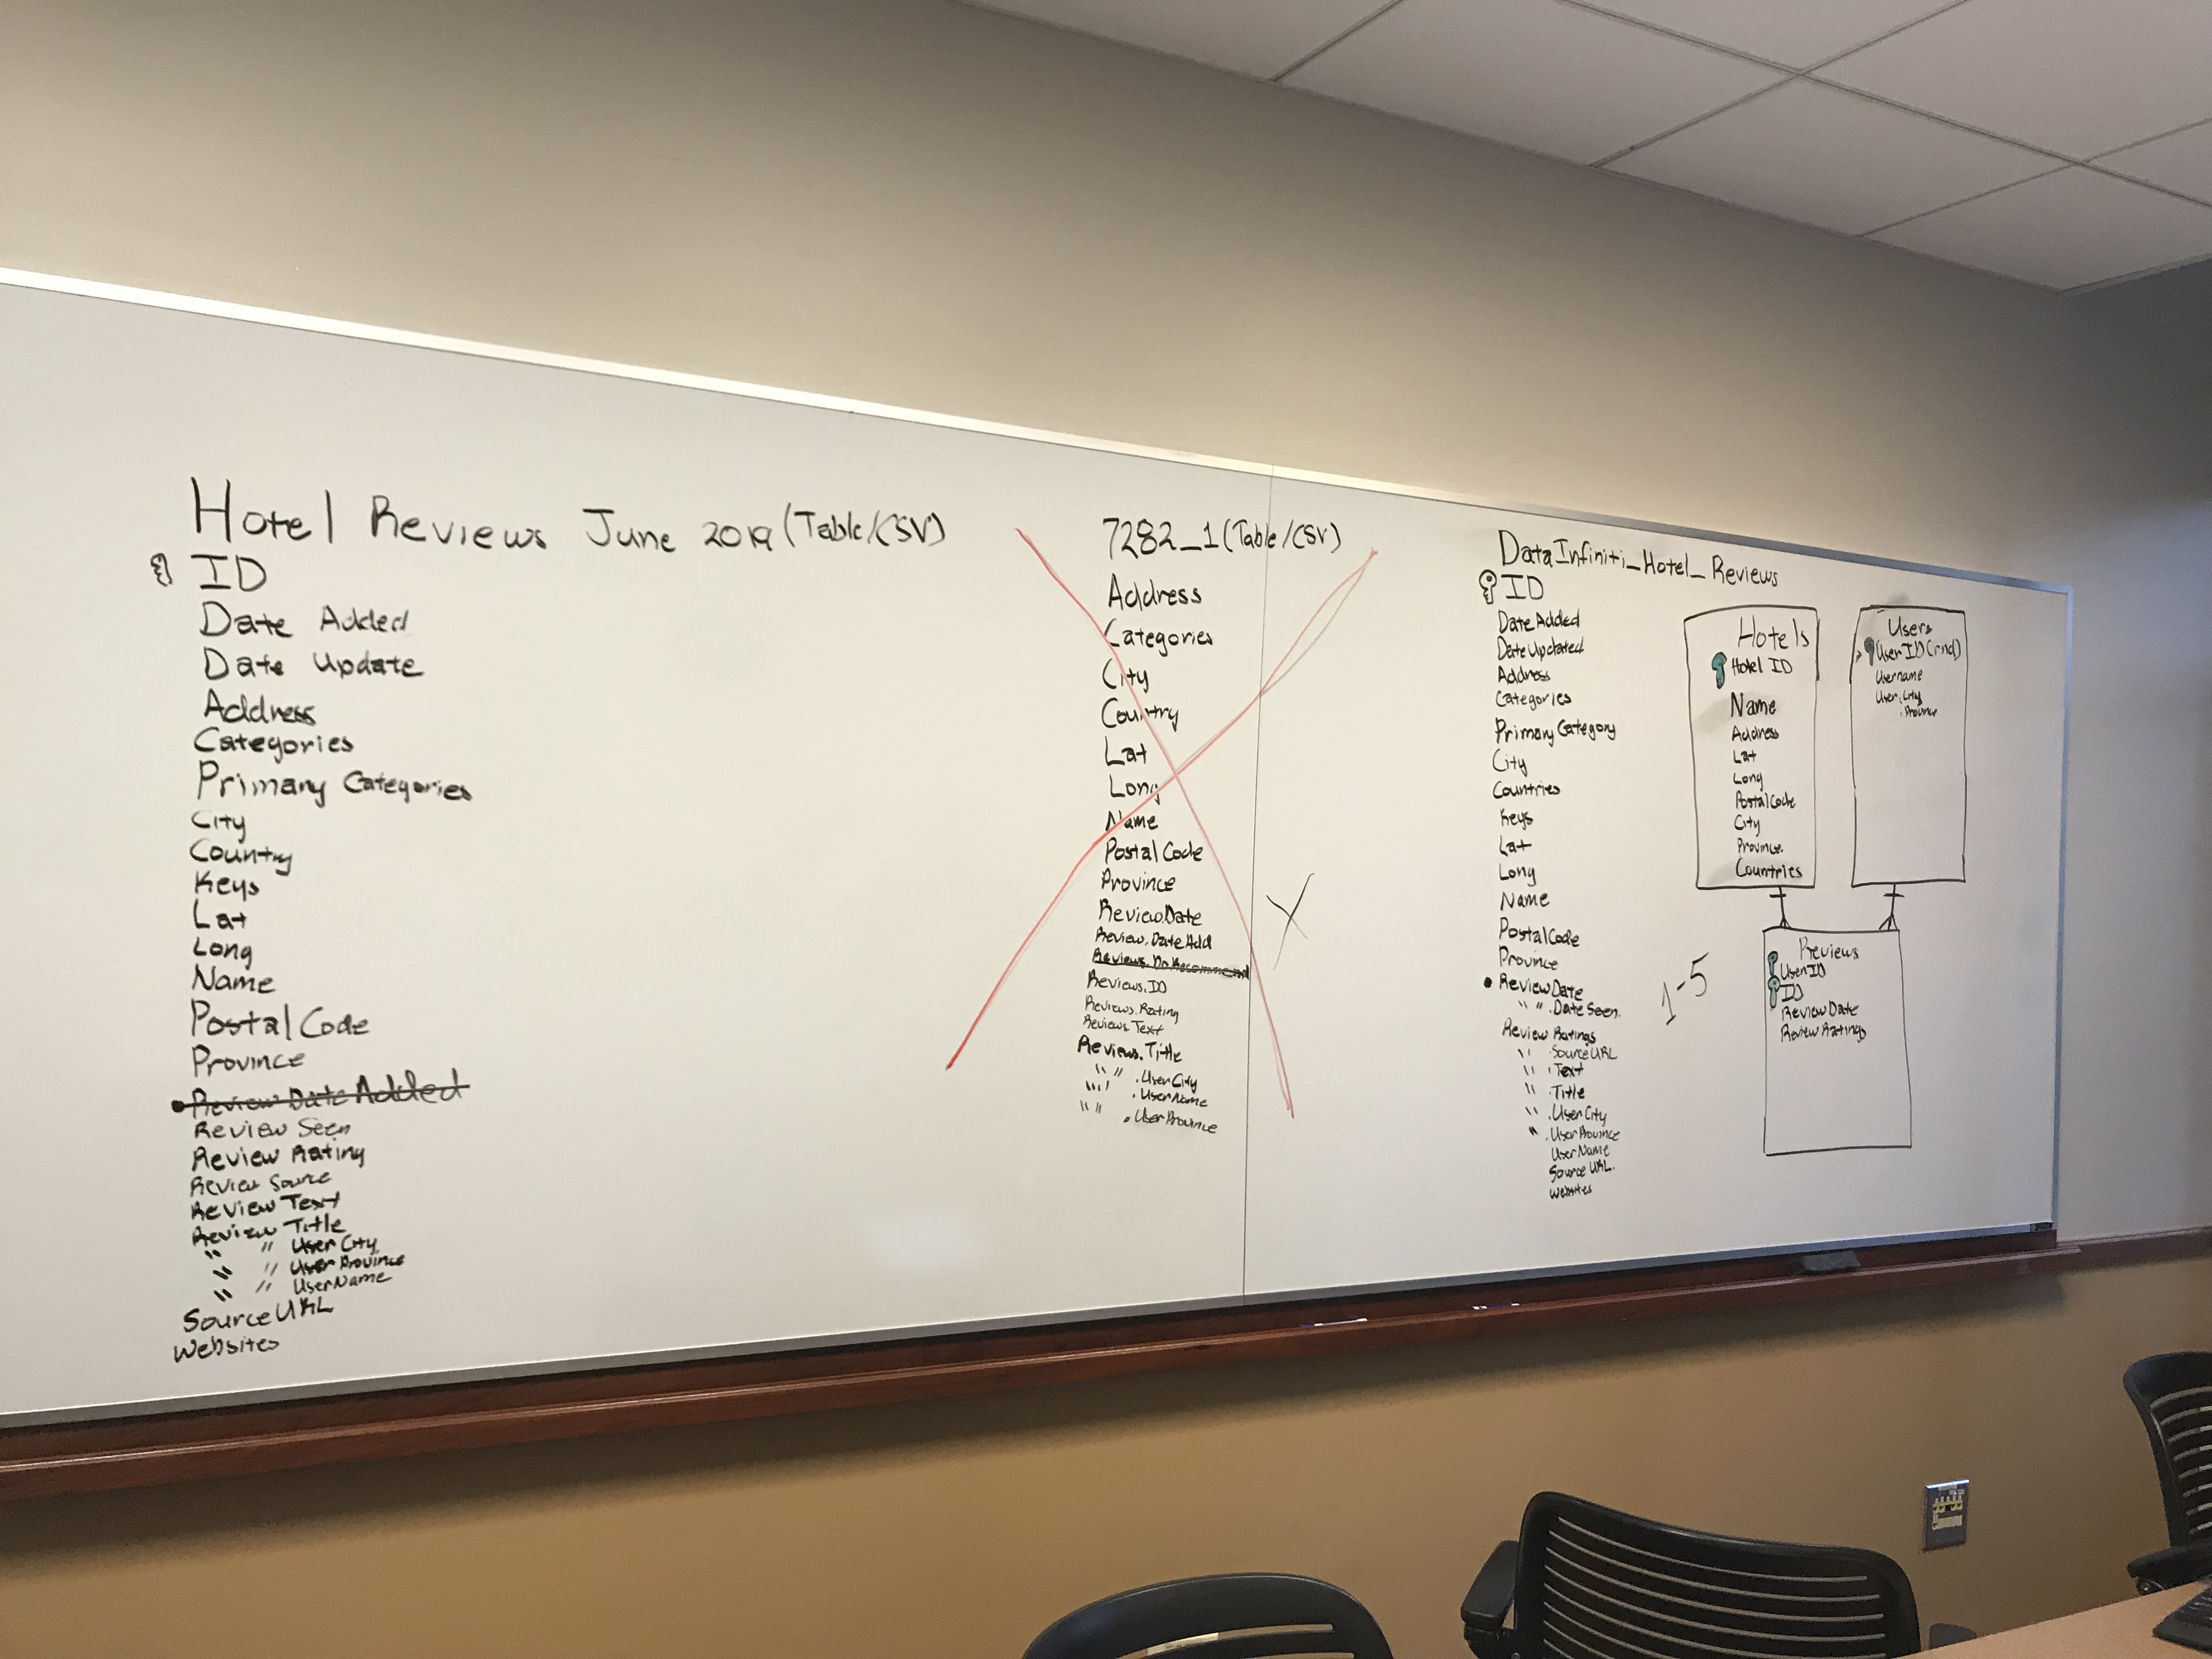 Hotel Reviews June 2019 (Table/CSV)
ID
Date Added
Date Update
Address
Categories
Primary Categories
City
Country
Keys
Lat
Long
Name
Postal Code
Province
Review Date Added
Review Seen
Review Rating
Review Source
Review Text
Review Title
" " User City
" " User Province
" " UserName
Source URL
Websites
7282_1 (Table/CSV)
Address
Categories
City
Country
Lat
Long
Name
Postal Code
Province
Review.Date
Review.Date Add
Reviews.DoRecommend
Reviews.ID
Reviews.Rating
Reviews.Text
Reviews.Title
" " .UserCity
" " .UserName
" " .UserProvince
X
DataInfiniti_Hotel_Reviews
ID
Date Added
Date Updated
Address
Categories
Primary Category
City
Countries
Keys
Lat
Long
Name
Postal Code
Province
Review Date
" " .Date Seen.
Review Ratings
" .SourceURL
" .Text
" .Title
" .UserCity
" .UserProvince
UserName
Source URL.
Websites
1-5
Hotels
Hotel ID
Name
Address
Lat
Long
Postal Code
City
Province.
Countries
Users
User ID (rnd)
Username
User.City
.Province
Reviews
UserID
ID
Review Date
Review Ratings